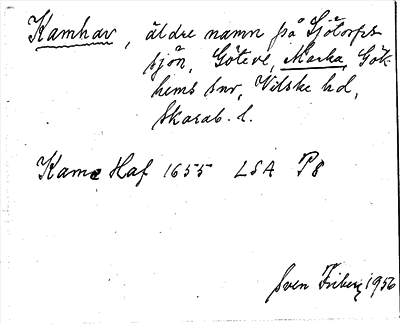 Kamhav, äldre namn på Sjötorps
sjön, Göteve, Marka, Gök-
hems snr, Vilske hd,
Skarab. l.
Kame Haf 1655 LSA P8
Sven Friberg 1956